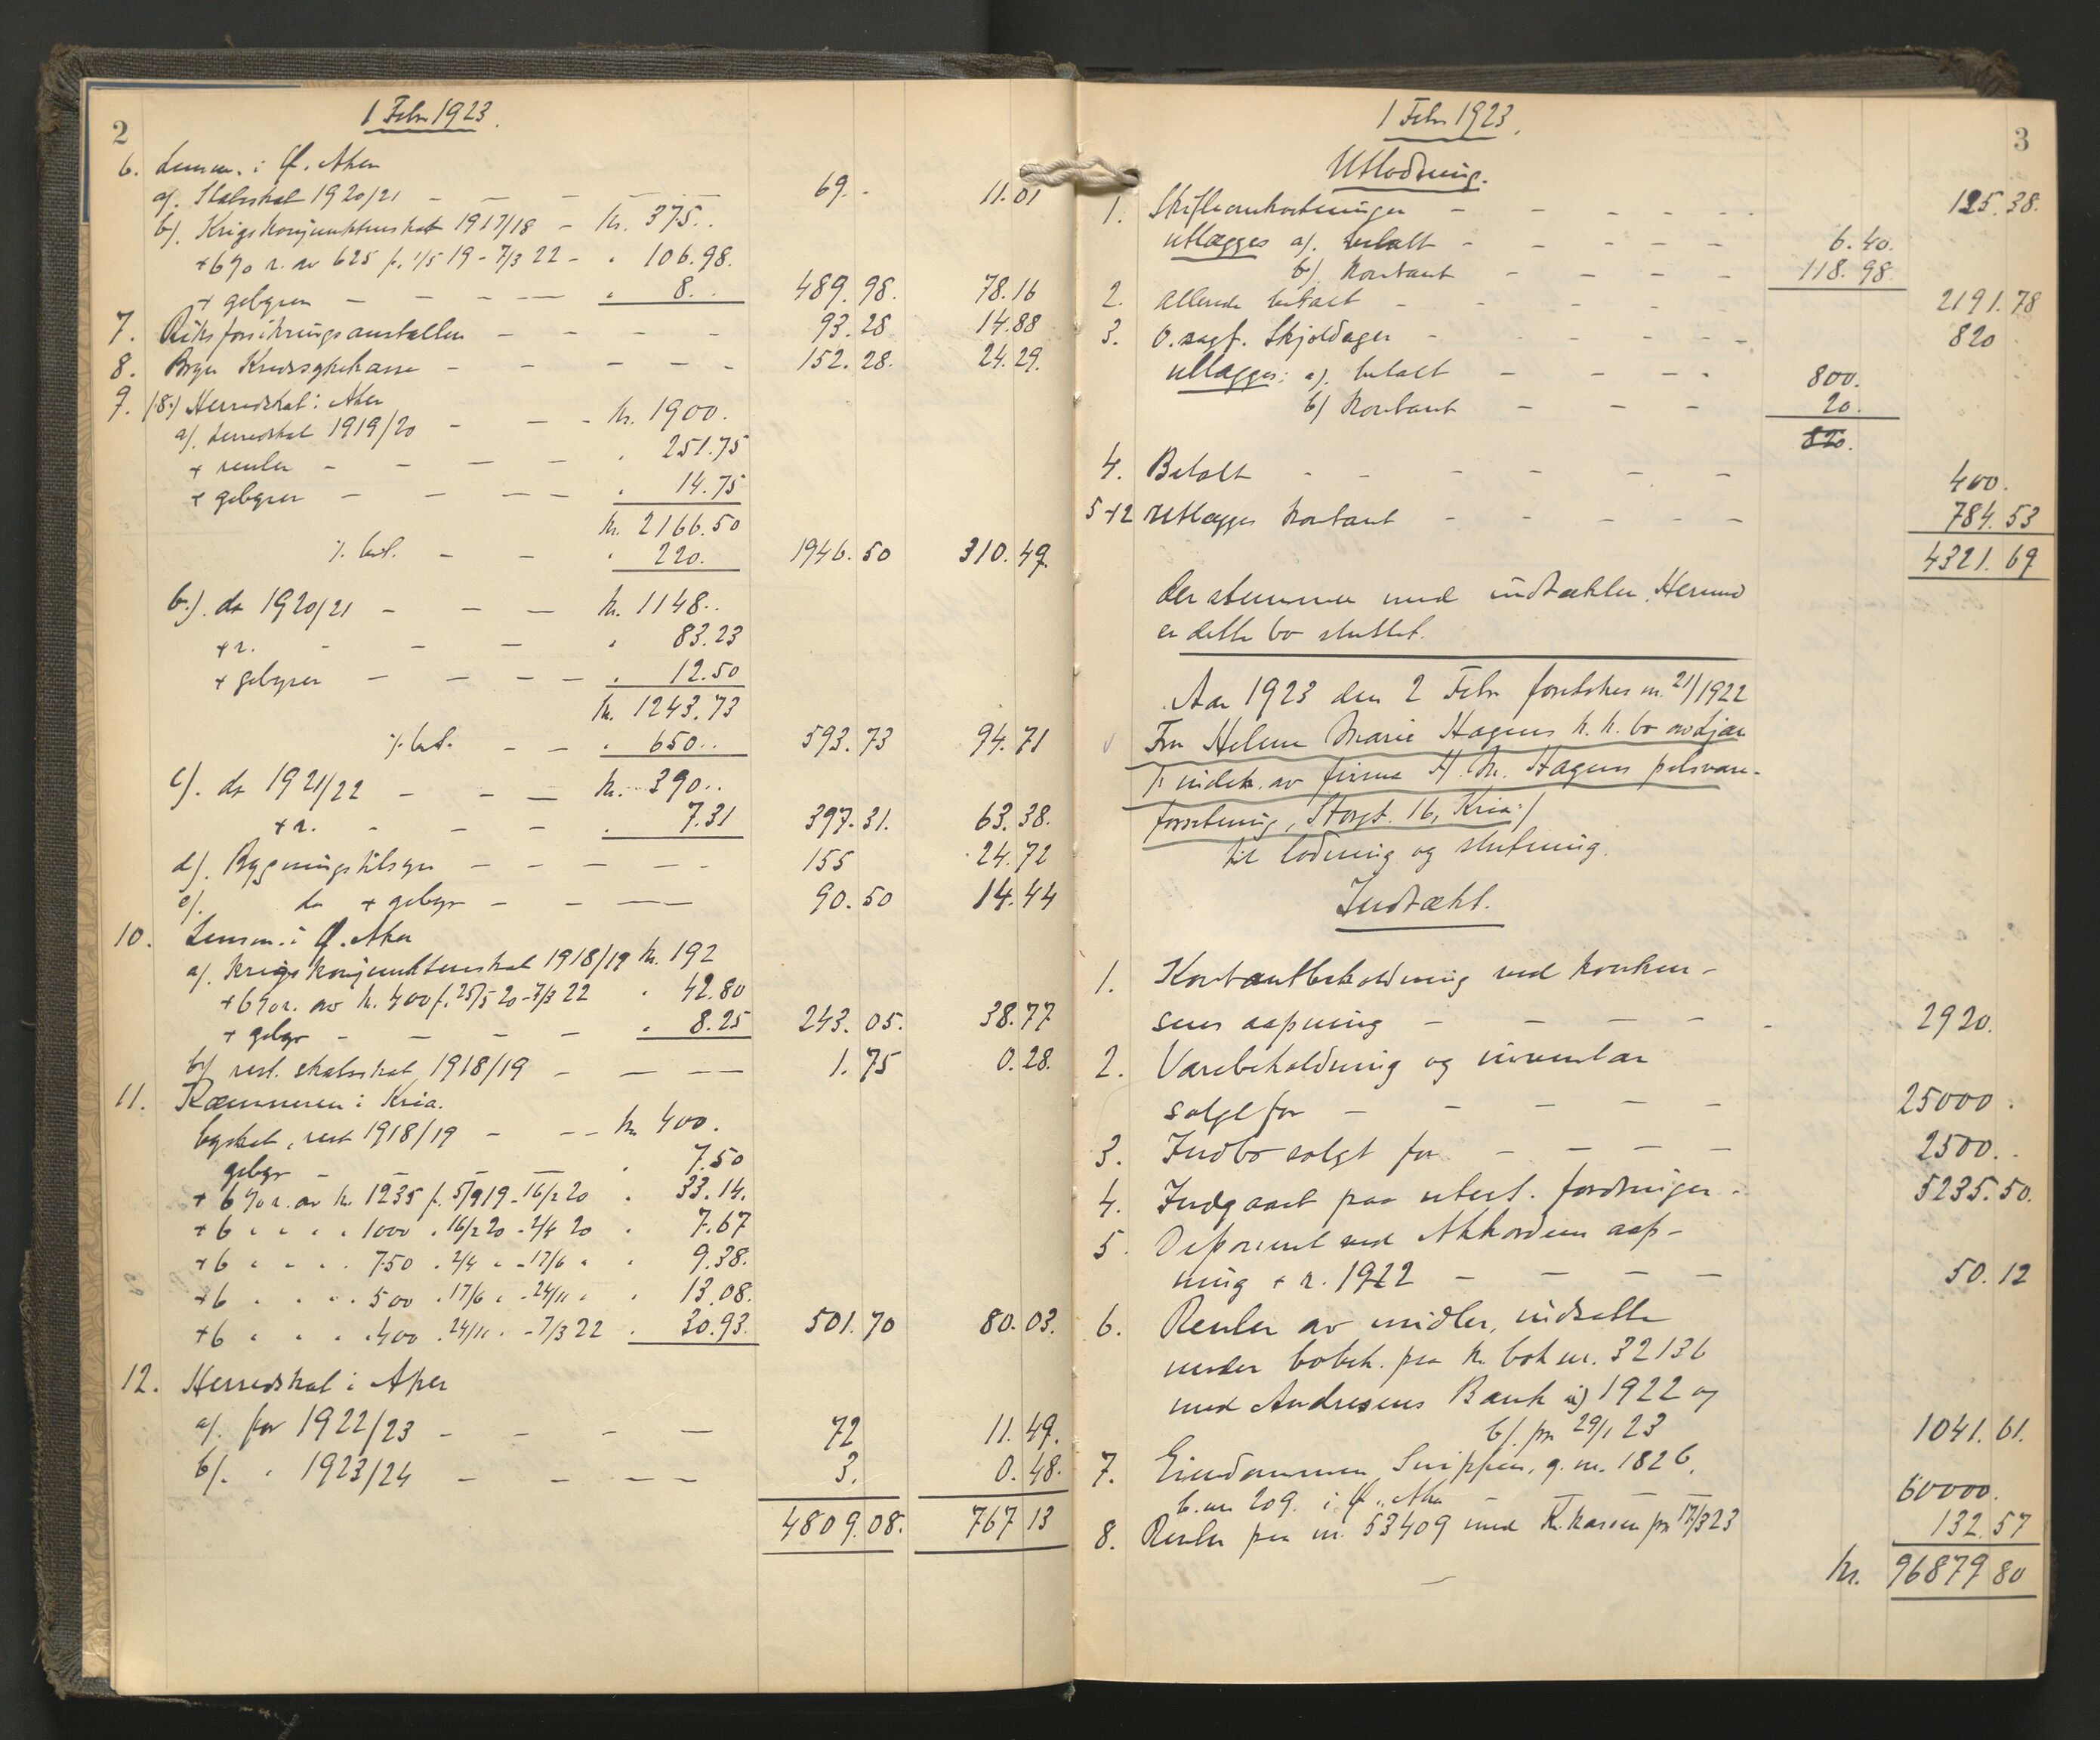 2
1 Febr 1923.
6. Lensm. i Ø. Aker
a/. Statsskat 1920/21 - - - - - 69.- 11.01
b/. Krigskonjunkturskat 1917/18 - kr. 375..
+ 6% r. av 625 f. 1/5 19 - 7/3 22 - " 106.98.
+ gebyrer - - - - " 8.. 489.98. 78.16
7. Riksforsikringsanstalten - - - - 93.28 14.88
8. Bryn Kredssykekasse - - - - - 152.28. 24.29.
9. (8.) Herredskat i Aker
a/. herredskat 1919/20 - - - kr. 1900.
+ renter - - - - " 251.75
+ gebyrer - - - - " 14.75
kr. 2166.50
% bet. - - " 220. 1946.50 310.49.
b/. do 1920/21 - - - kr. 1148..
+ r. - - - " 83.23
+ gebyrer - - - - " 12.50
kr. 1243.73
% bet. - - " 650.. 593.73 94.71
c/. do 1921/22 - - - kr. 390..
+ r. - - - " 7.31 397.31. 63.38.
d/. Bygningstilsyn - - - - - 155 24.72
e/. do + gebyr - - - 90.50 14.44
10. Lensm. i Ø. Aker
a/. Krigskonjunkturskat 1918/19 kr. 192
+ 6% r. av kr. 400 f. 25/5 20 - 7/3 22 " 42.80
+ gebyr - - - - " 8.25 243.05. 38.77
b/ rest. statsskat 1918/19 - - - 1.75 0.28.
11. Kæmneren i Kria.
byskat, rest 1918/19 - - - kr 400.
gebyr - - - - " 7.50
+ 6% r. av kr. 1235 f. 5/9 19 - 16/2 20 " 33.14.
+ 6 " " " " 1000 " 16/2 20 - 2/4 20 " 7.67
+ 6 " " " " 750 " 2/4 " - 17/6 " " 9.38.
+ 6 " " " " 500 " 17/6 " - 24/11 " " 13.08.
+ 6 " " " " 400 " 24/11 " - 7/3 22 " 30.93. 501.70 80.03.
12. Herredskat i Aker
a/. for 1922/23 - - - - 72 11.49.
b/. " 1923/24 - - - - 3. 0.48.
4809.08. 767 13
3
1 Febr 1923.
Utlodning.
1. Skifteomkostninger - - - - - 125.38.
utlægges a/. betalt - - - - - 6.40.
b/. kontant - - - - 118.98.
2. allerede betalt - - - - 2191.78
3. O.sagf. Skjoldager - - - - - 820
utlægges: a/. betalt - - - - 800.
b/ kontant - - - 20.
820.
4. Betalt - - - - - - 400.
5-12 Utlægges kontant - - - - - 784.53
4321.69
der stemmer med indtækten. Hermed
er dette bo sluttet.
Aar 1923 den 2 Febr foretokes nr. 21/1922
Fru Helene Marie Hagens k. k. bo av Ljan
/: indeh. av firma H. M. Hagens pelsvare-
forretning, Storgt. 16, Kria:/
til lodning og slutning.
Indtækt.
1. Kontantbeholdning ved konkur-
sens aapning - - - - - 2920.
2. Varebeholdning og inventar
solgt for - - - - - 25000.
3. Indbo solgt for - - - - 2500..
4. Indgaaet paa utest. fordringer - 5235.50.
5. Deponert ved Akkordens aap-
ning + r. 1922 - - - - 50.12
6. Renter av midler, indsatte
under bobeh. paa kr. bok nr. 32136
med Andresens Bank a) 1922 og
b/. pr 29/1 23 1041.61.
7. Eiendommen Snippen, g. nr. 182 6,
b. nr 209. i Ø. Aker - - - 60000.
8. Renter paa nr. 53409 med Kr.kassen pr 17/3 23 132.57
kr. 96879 80